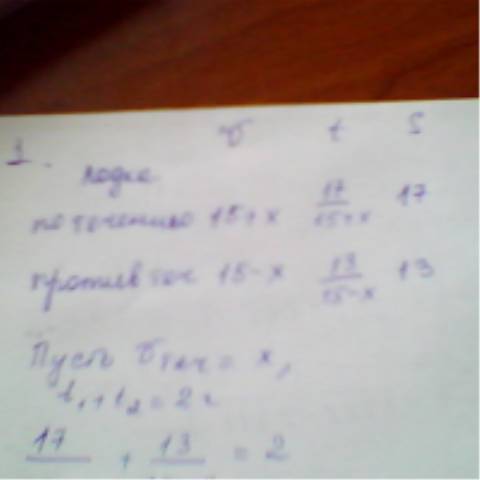 1. v t S
лодка
по течению 15+x 17/15+x 17
против теч 15-x 13/15-x 13
Пусть Vтеч = x,
t₁+t₂=2ч
17 + 13 = 2